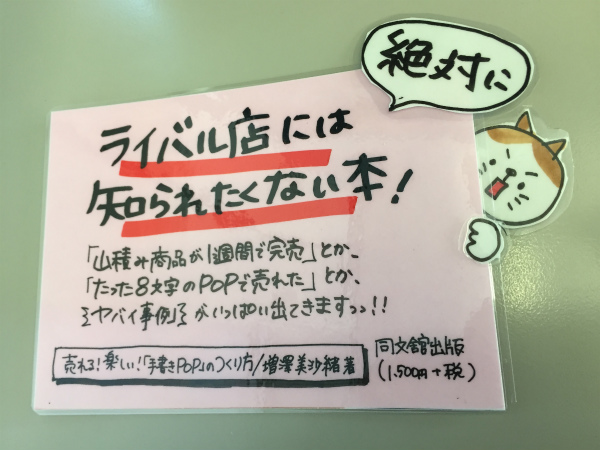 絶対に
ライバル店には
知られたくない本!
「山積み商品が1週間で完売」とか、
「たった8文字のPOPで売れた」とか、
ヤバイ事例がいっぱい出てきますっっ!!
売れる!楽しい!「手書きPOP」のつくり方/増澤美沙緒 著
同文舘出版
(1,500円+税)